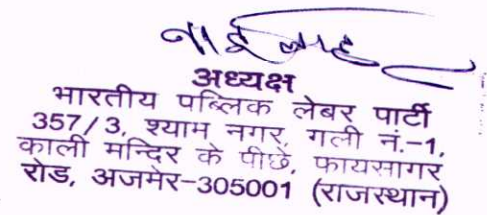 अध्यक्ष
भारतीय पब्लिक लेबर पार्टी
357/3, श्याम नगर, गली नं.-1,
काली मन्दिर के पीछे, फायसागर
रोड, अजमेर-305001 (राजस्थान)